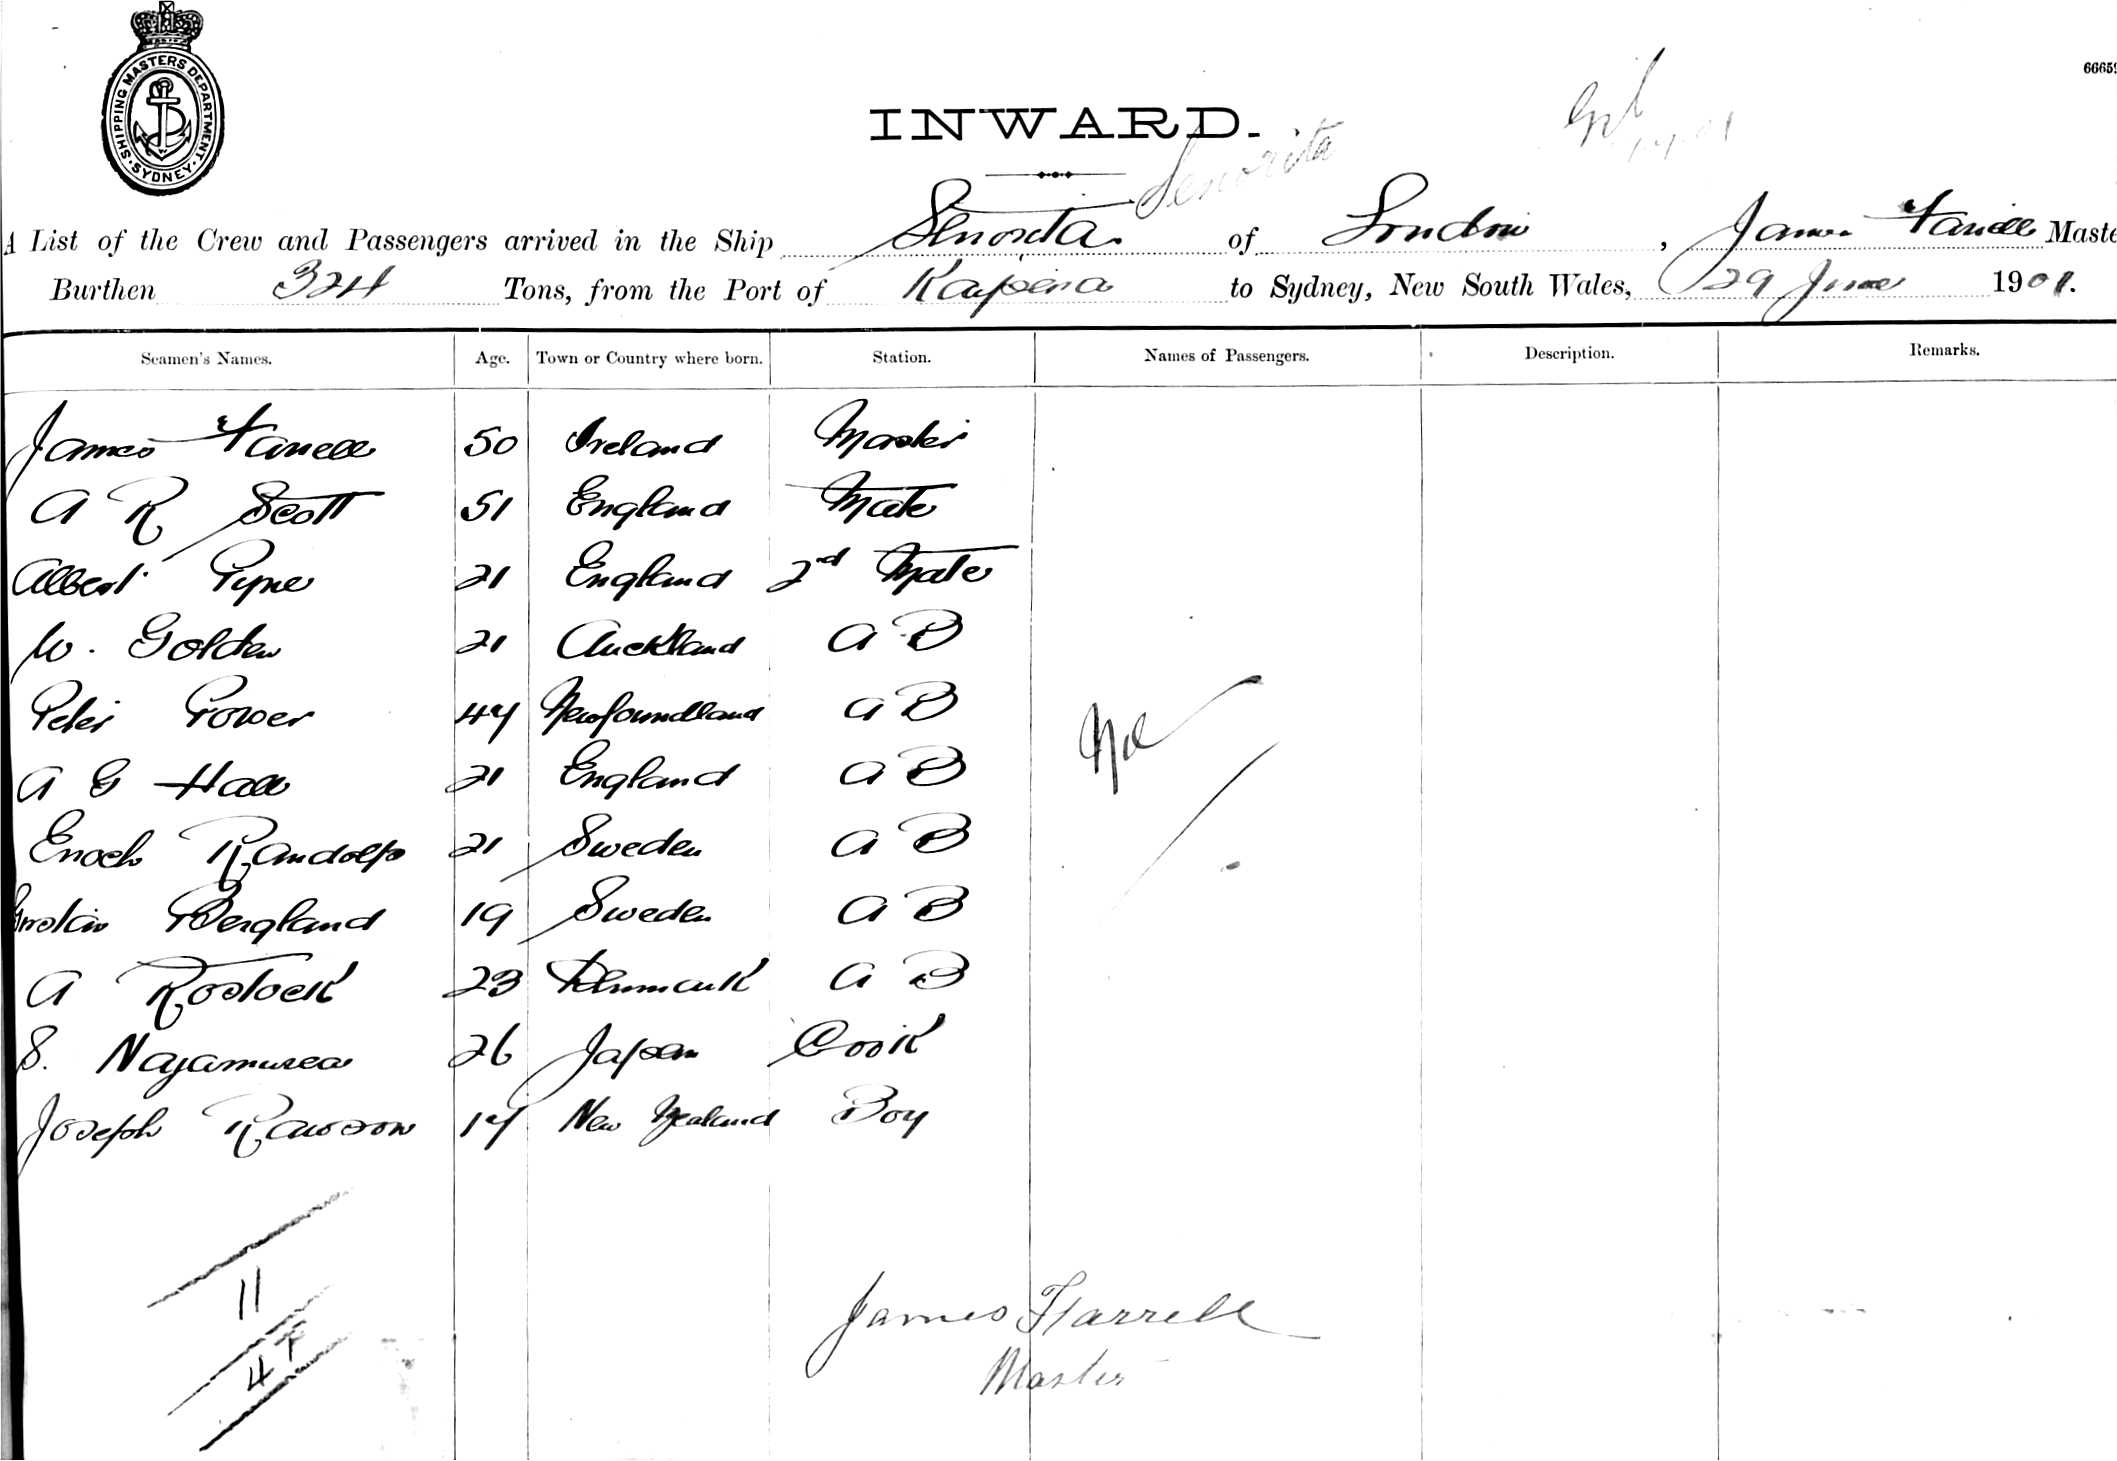 SHIPPING MASTERS DEPARTMENT. SYDNEY.
6665
INWARD.
Senorita
A List of the Crew and Passengers arrived in the Ship Senorita of London, James Farrell Maste
Burthen 324 Tons, from the Port of Kaipara to Sydney, New South Wales, 29 June 1901.
Seamen's Names. Age. Town or Country where born. Station. Names of Passengers. Description. Remarks.
James Farrell 50 Ireland Master
A R Scott 51 England Mate
Albert Pyne 21 England 2nd Mate
W. Golden 21 Auckland A B
Peter Power 47 Newfoundland A B
Nil
A G Hall 21 England A B
Enoch Randolf 21 Sweden A B
Bergland 19 Sweden A B
A Rostock 23 Denmark A B
S. Nagamurea 26 Japan Cook
Joseph Rawson 17 New Zealand Boy
11
4 F
James Farrell
Master